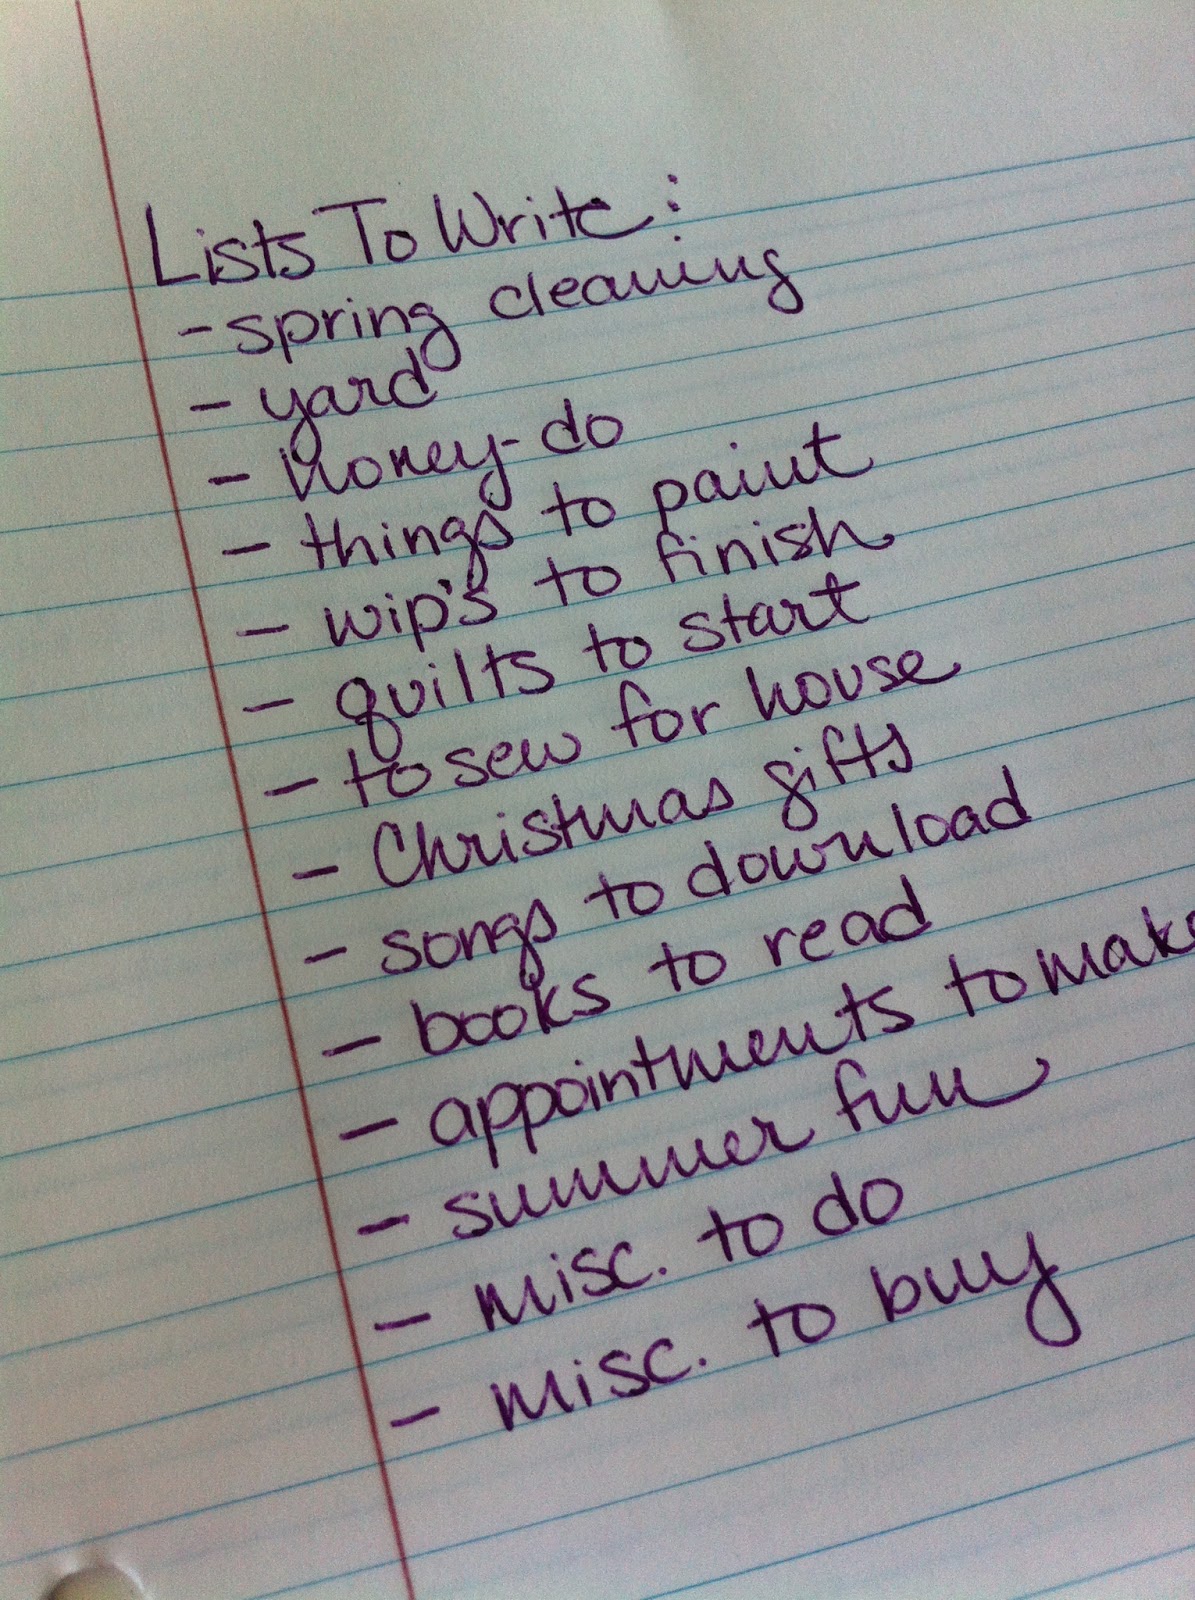 Lists To Write:
- spring cleaning
- yard
- honey-do
- things to paint
- wip's to finish
- quilts to start
- to sew for house
- Christmas gifts
- songs to download
- books to read
- appointments to make
- summer fun
- misc. to do
- misc. to buy